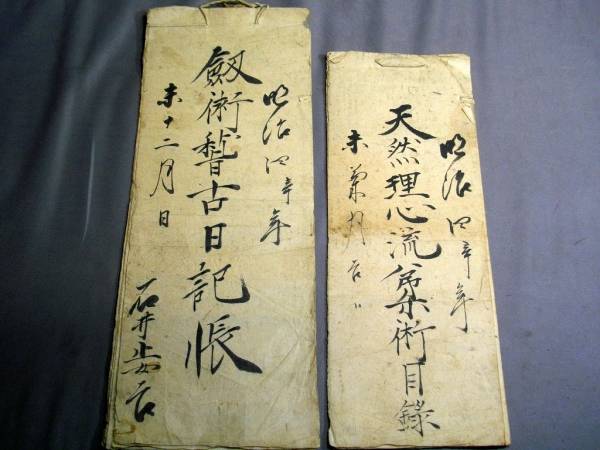 天然理心流柔術目録
明治四辛年
未菊月吉日
劔術稽古日記帳
明治四辛年
未十二月日
石井